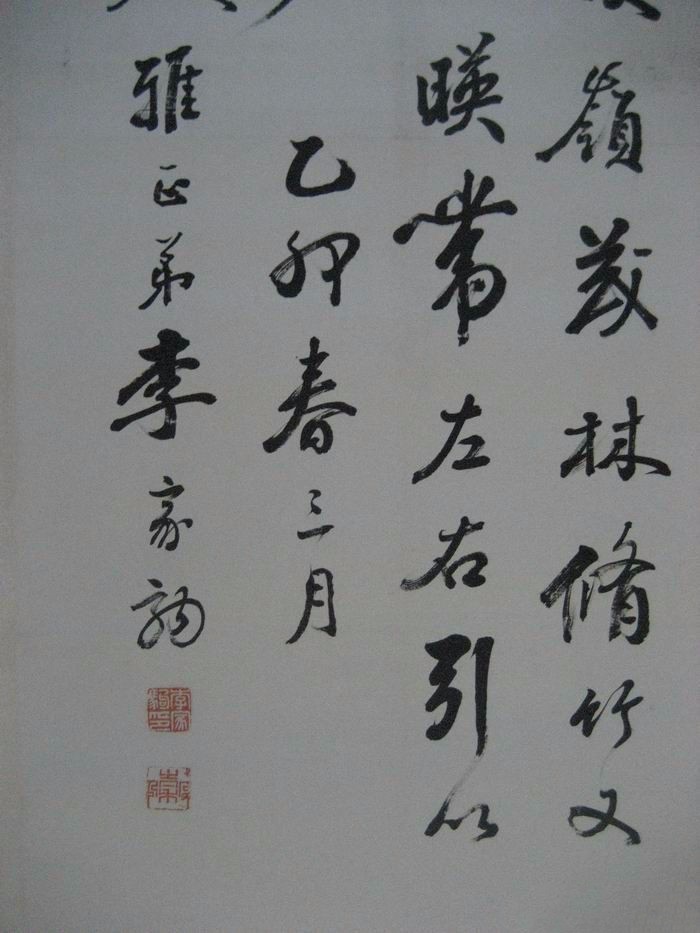 嶺茂林脩竹又
暎帶左右引以
乙卯春三月
雅正弟李家駒
李家駒印